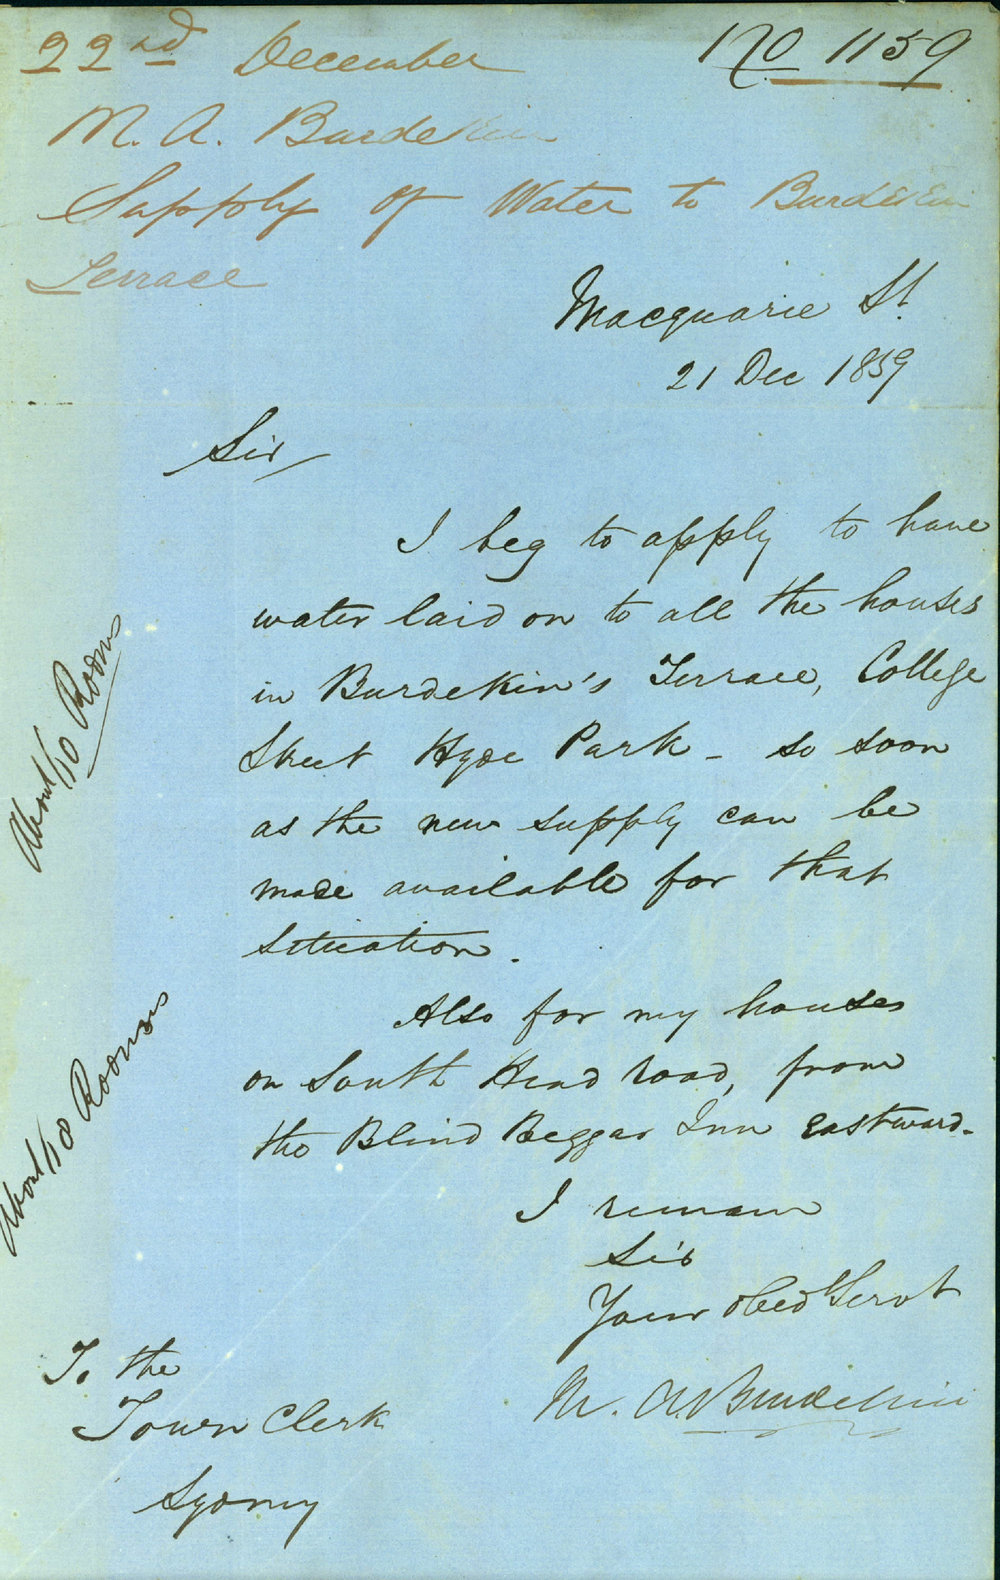 22nd December
No 1159
M. A. Burdekin
Supply of Water to Burdekin
Terrace
Macquarie St.
21 Dec 1859
Sir
I beg to apply to have
water laid on to all the houses
in Burdekin's Terrace, College
Street Hyde Park - so soon
as the new supply can be
made available for that
situation.
Also for my houses
on South Head road, from
the Blind Beggar Inn Eastward.
I remain
Sir
Your obed Servt
M. A. Burdekin
To the
Town Clerk
Sydney
About 10 Rooms
About 10 Rooms